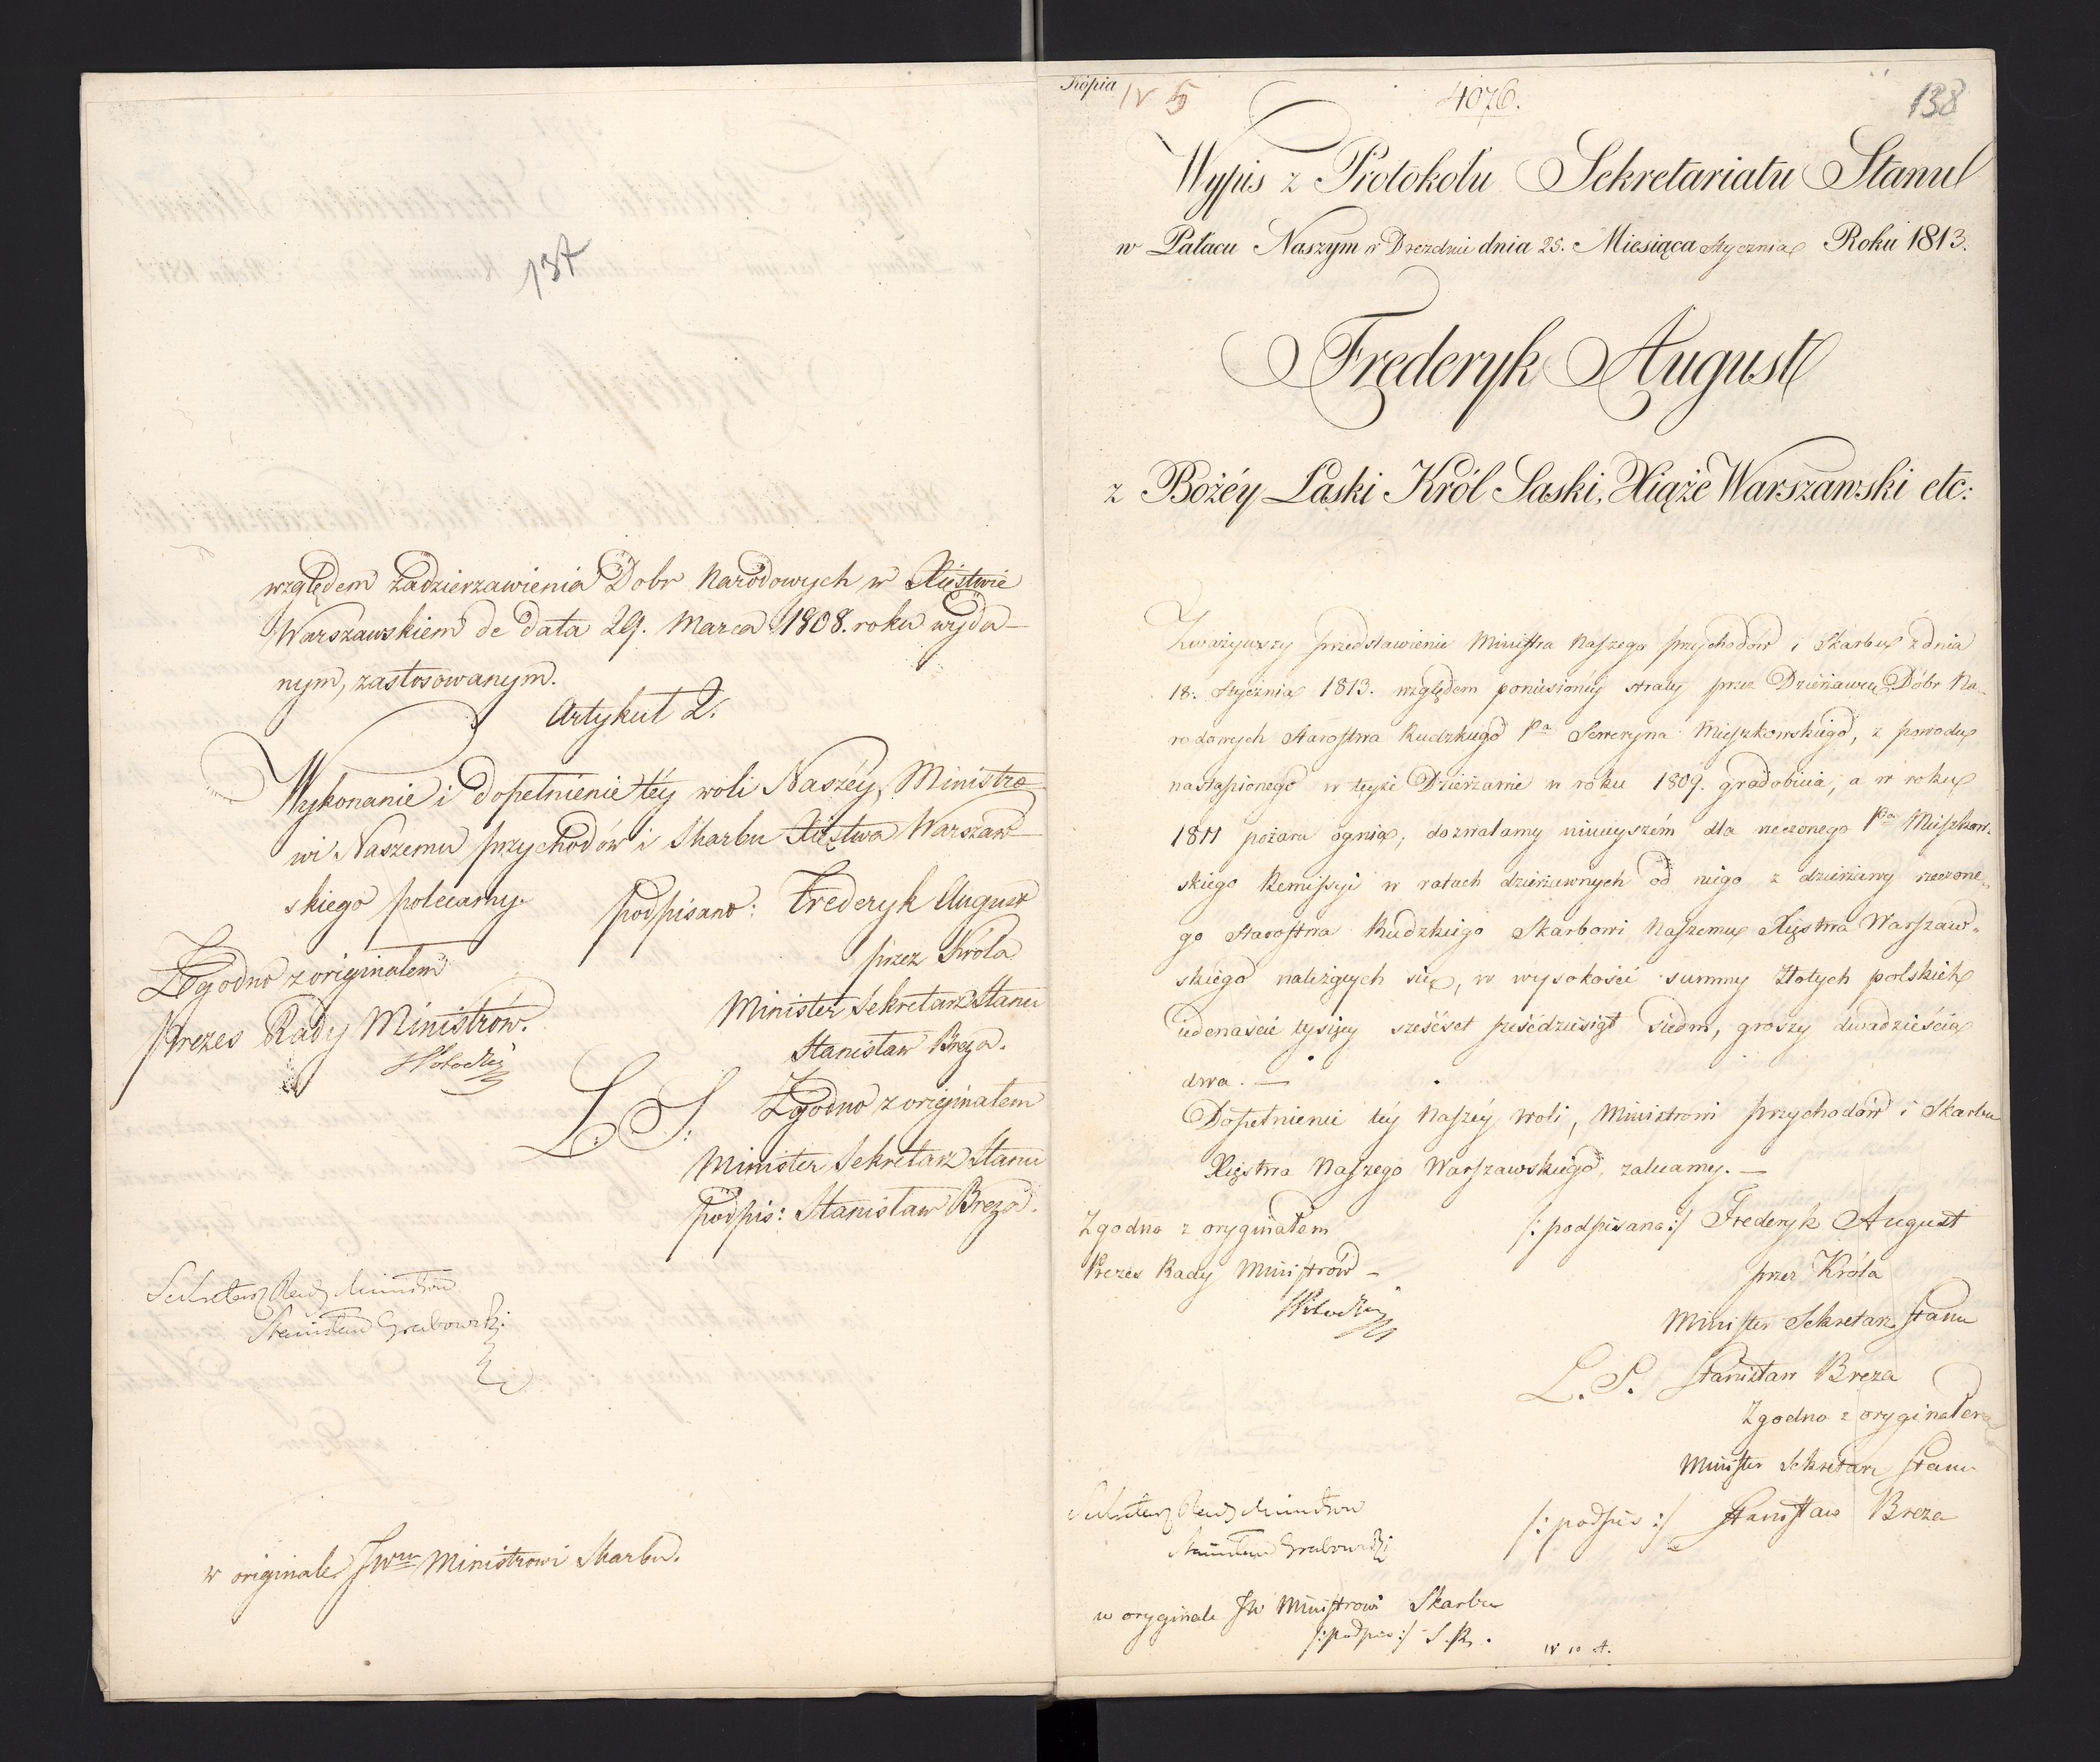 137
względem zadzierzawienia Dobr Narodowych w Xięstwie
Warszawskiem de data 29. Marca 1808. roku wyda-
nym, zastosowanym.
Artykuł 2.
Wykonanie i dopełnienie téy woli Naszéy, Ministro
wi Naszemu przychodów i Skarbu Xięstwa Warszaw-
skiego polecamy.
podpisano: Frederyk August
przez Króla
Minister Sekretarz Stanu
Stanisław Breza.
Zgodno z originałem
Prezes Rady Ministrów.
L. S. Zgodno z originałem
Minister Sekretarz Stanu
podpis: Stanisław Breza.
Sekretarz Rady Ministrów
Stanisław Grabowski
w originale JWu Ministrowi Skarbu.
Kopia
IV 5
4076.
138
Wypis z Protokołu Sekretariatu Stanu
w Pałacu Naszym w Dreznie dnia 25. Miesiąca Stycznia Roku 1813.
Frederyk August
z Bożéy Łaski Król Saski, Xiąże Warszawski etc:
Zważywszy przedstawienie Ministra Naszego przychodów i Skarbu z dnia
18. Stycznia 1813. względem poniesionéy straty przez Dzierżawcę Dóbr Na-
rodowych Starostwa Rudzkiego Pa Seweryna Mieszkowskiego, z powodu
nastąpionego w teyże Dzierżawie w roku 1809. gradobicia, a w roku
1811 pożaru ognia, dozwalamy ninieyszém dla rzeczonego Pa Mieszkow-
skiego Remissyi w ratach dzierżawnych od niego z dzierżawy rzeczone-
go Starostwa Rudzkiego Skarbowi Naszemu Xięstwa Warszaw-
skiego należących się, w wysokości summy złotych polskich
iedenaście tysięcy sześćset pięćdziesiąt siedm, groszy dwadzieścia
dwa. —
Dopełnienie téy Naszéy woli, Ministrowi przychodów i Skarbu
Xięstwa Naszego Warszawskiego, zalecamy. —
Zgodno z oryginałem
Prezes Rady Ministrów -
/: podpisano :/ Frederyk August
przez Króla
Minister Sekretarz Stanu
L. S. Stanisław Breza
Zgodno z oryginałem
Minister Sekretarz Stanu
/: podpis :/ Stanisław Breza
Sekretarz Rady Ministrów
Stanisław Grabowski
w oryginale JW Ministrowi Skarbu
/: podpis :/ S. B.